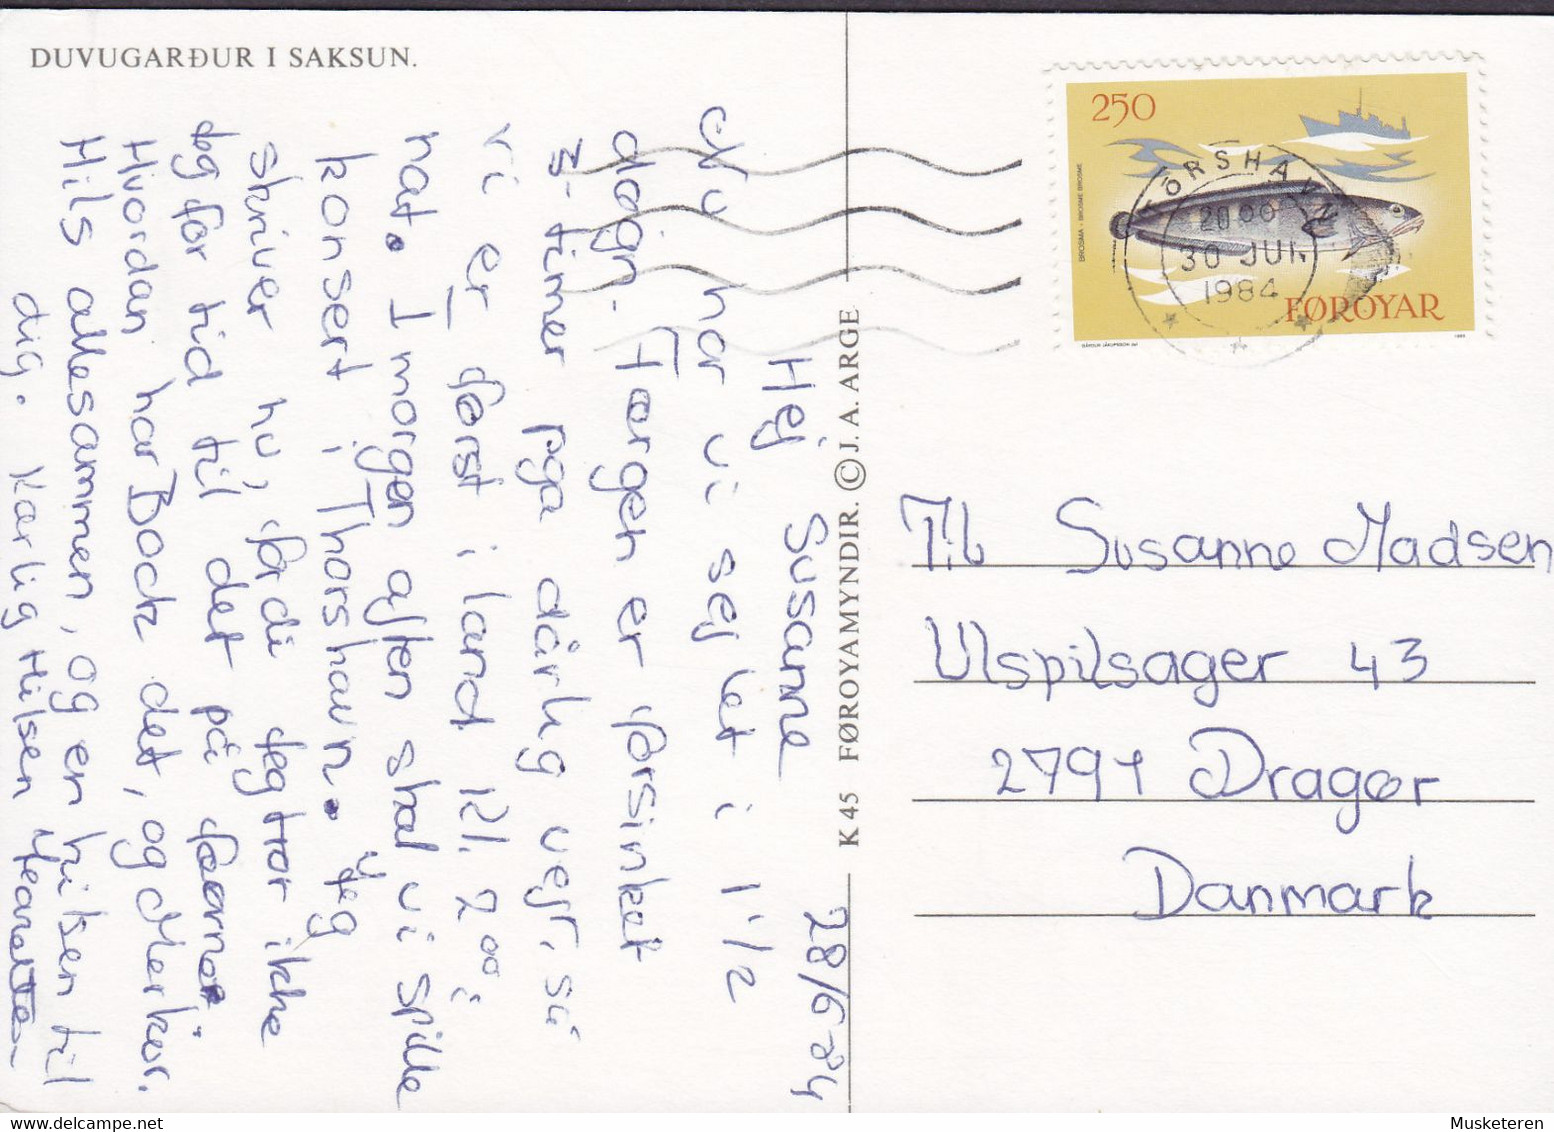 DUVUGARÐUR I SAKSUN.
28/6-84
Hej Susanne
Nu har vi sejlet i 1 1/2
døgn. Færgen er forsinket
3-timer pga dårlig vejr, så
vi er først i land kl. 2.00 i
nat. I morgen aften skal vi spille
konsert i Thorshavn. Jeg
skriver nu, fordi jeg tror ikke
jeg før tid til det på færøerne.
Hvordan har Bock det, og Merkur.
Hils allesammen, og en hilsen til
dig. Kærlig Hilsen Jeanette
K 45 FØROYAMYNDIR. © J. A. ARGE
250
BROSMA · BROSME BROSME
FØROYAR
TÓRSHAVN
20 00
30 JUN
1984
Til Susanne Madsen
Ulspilsager 43
2791 Dragør
Danmark
Musketeren